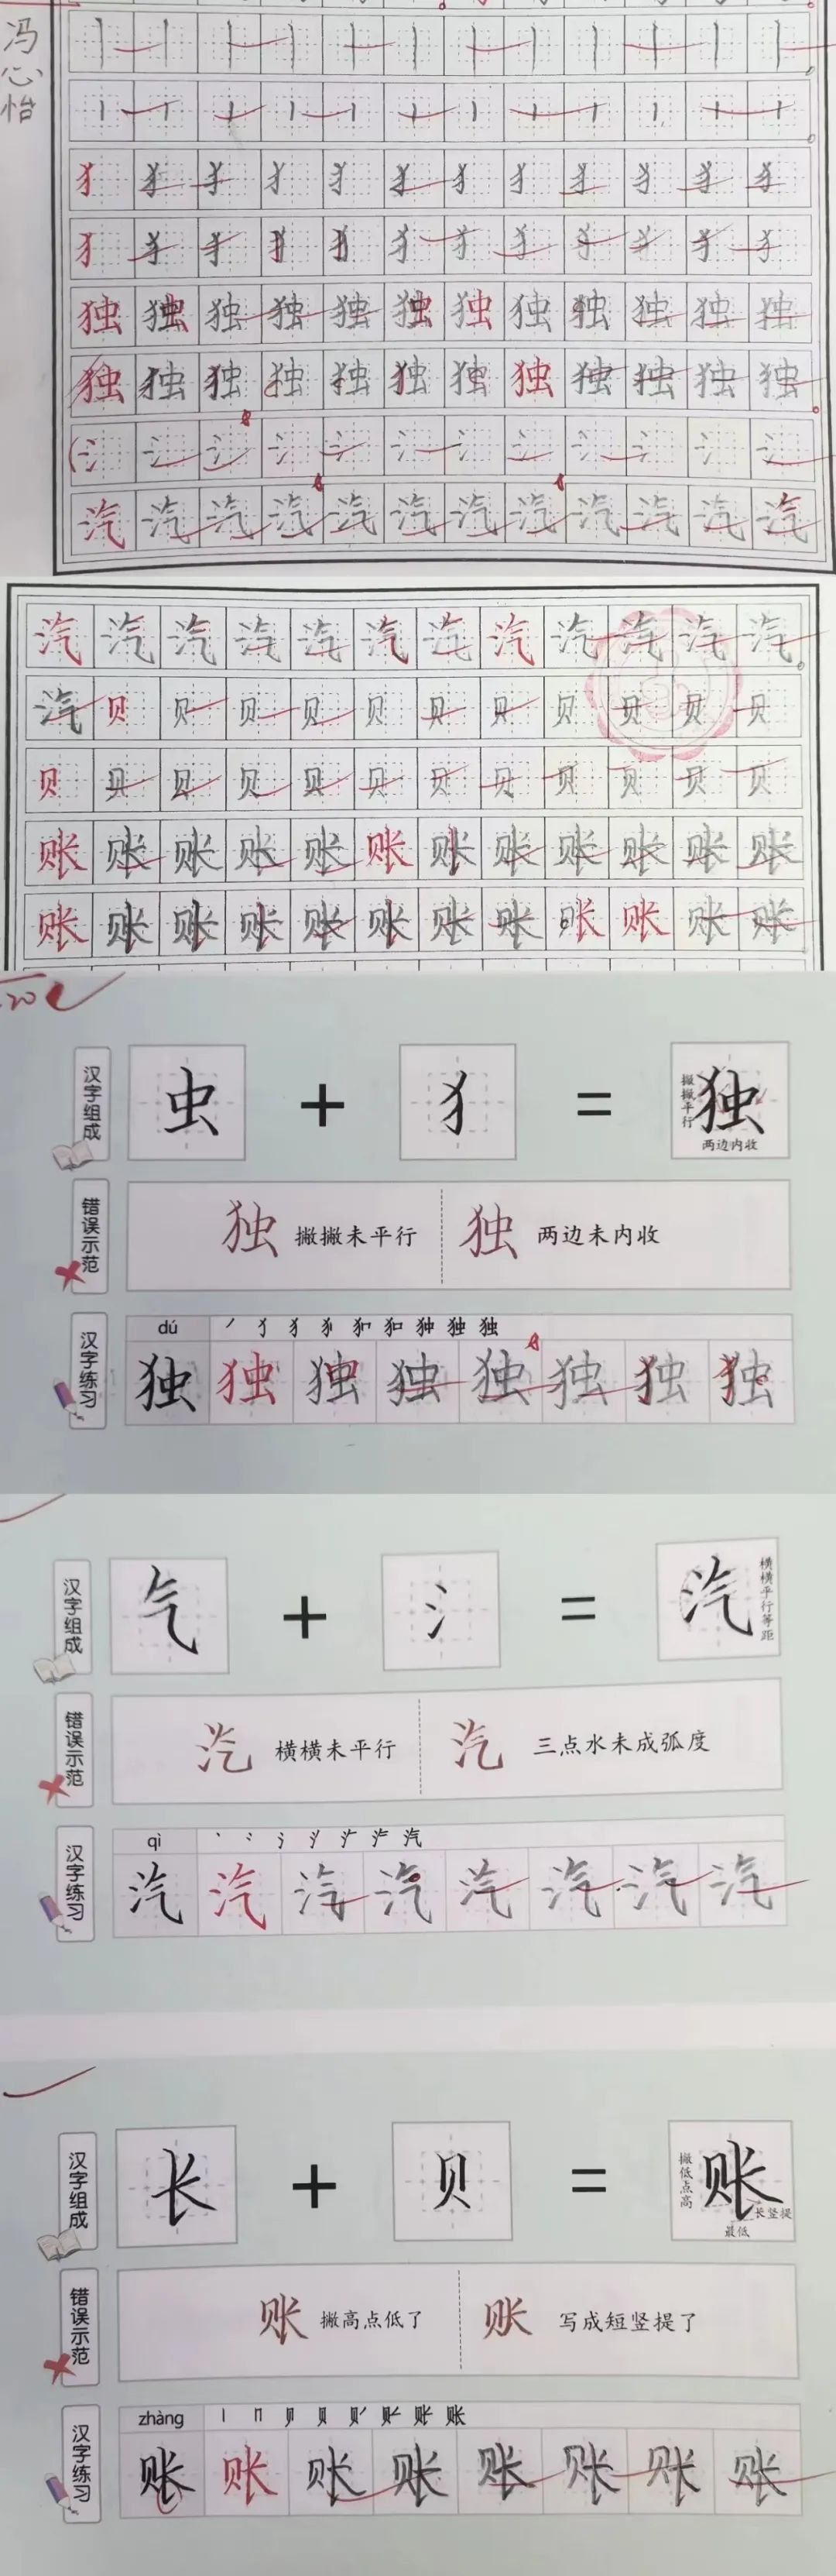 冯心怡
犭 犭 犭 犭 犭 犭 犭 犭 犭 犭 犭 犭
犭 犭 犭 犭 犭 犭 犭 犭 犭 犭 犭 犭
独 独 独 独 独 独 独 独 独 独 独 独
独 独 独 独 独 独 独 独 独 独 独 独
氵 氵 氵 氵 氵 氵 氵 氵 氵 氵 氵 氵
汽 汽 汽 汽 汽 汽 汽 汽 汽 汽 汽 汽
汽 汽 汽 汽 汽 汽 汽 汽 汽 汽 汽 汽
汽 贝 贝 贝 贝 贝 贝 贝 贝 贝 贝 贝
贝 贝 贝 贝 贝 贝 贝 贝 贝 贝 贝 贝
账 账 账 账 账 账 账 账 账 账 账 账
账 账 账 账 账 账 账 账 账 账 账 账
汉字组成
虫 + 犭 = 独
撇撇平行
两边内收
错误示范
独 撇撇未平行 独 两边未内收
汉字练习
dú
独 独 独 独 独 独 独 独
汉字组成
气 + 氵 = 汽
横横平行等距
错误示范
汽 横横未平行 汽 三点水未成弧度
汉字练习
qì
汽 汽 汽 汽 汽 汽 汽 汽
汉字组成
长 + 贝 = 账
撇低点高
长竖提
最低
错误示范
账 撇高点低了 账 写成短竖提了
汉字练习
zhàng
账 账 账 账 账 账 账 账